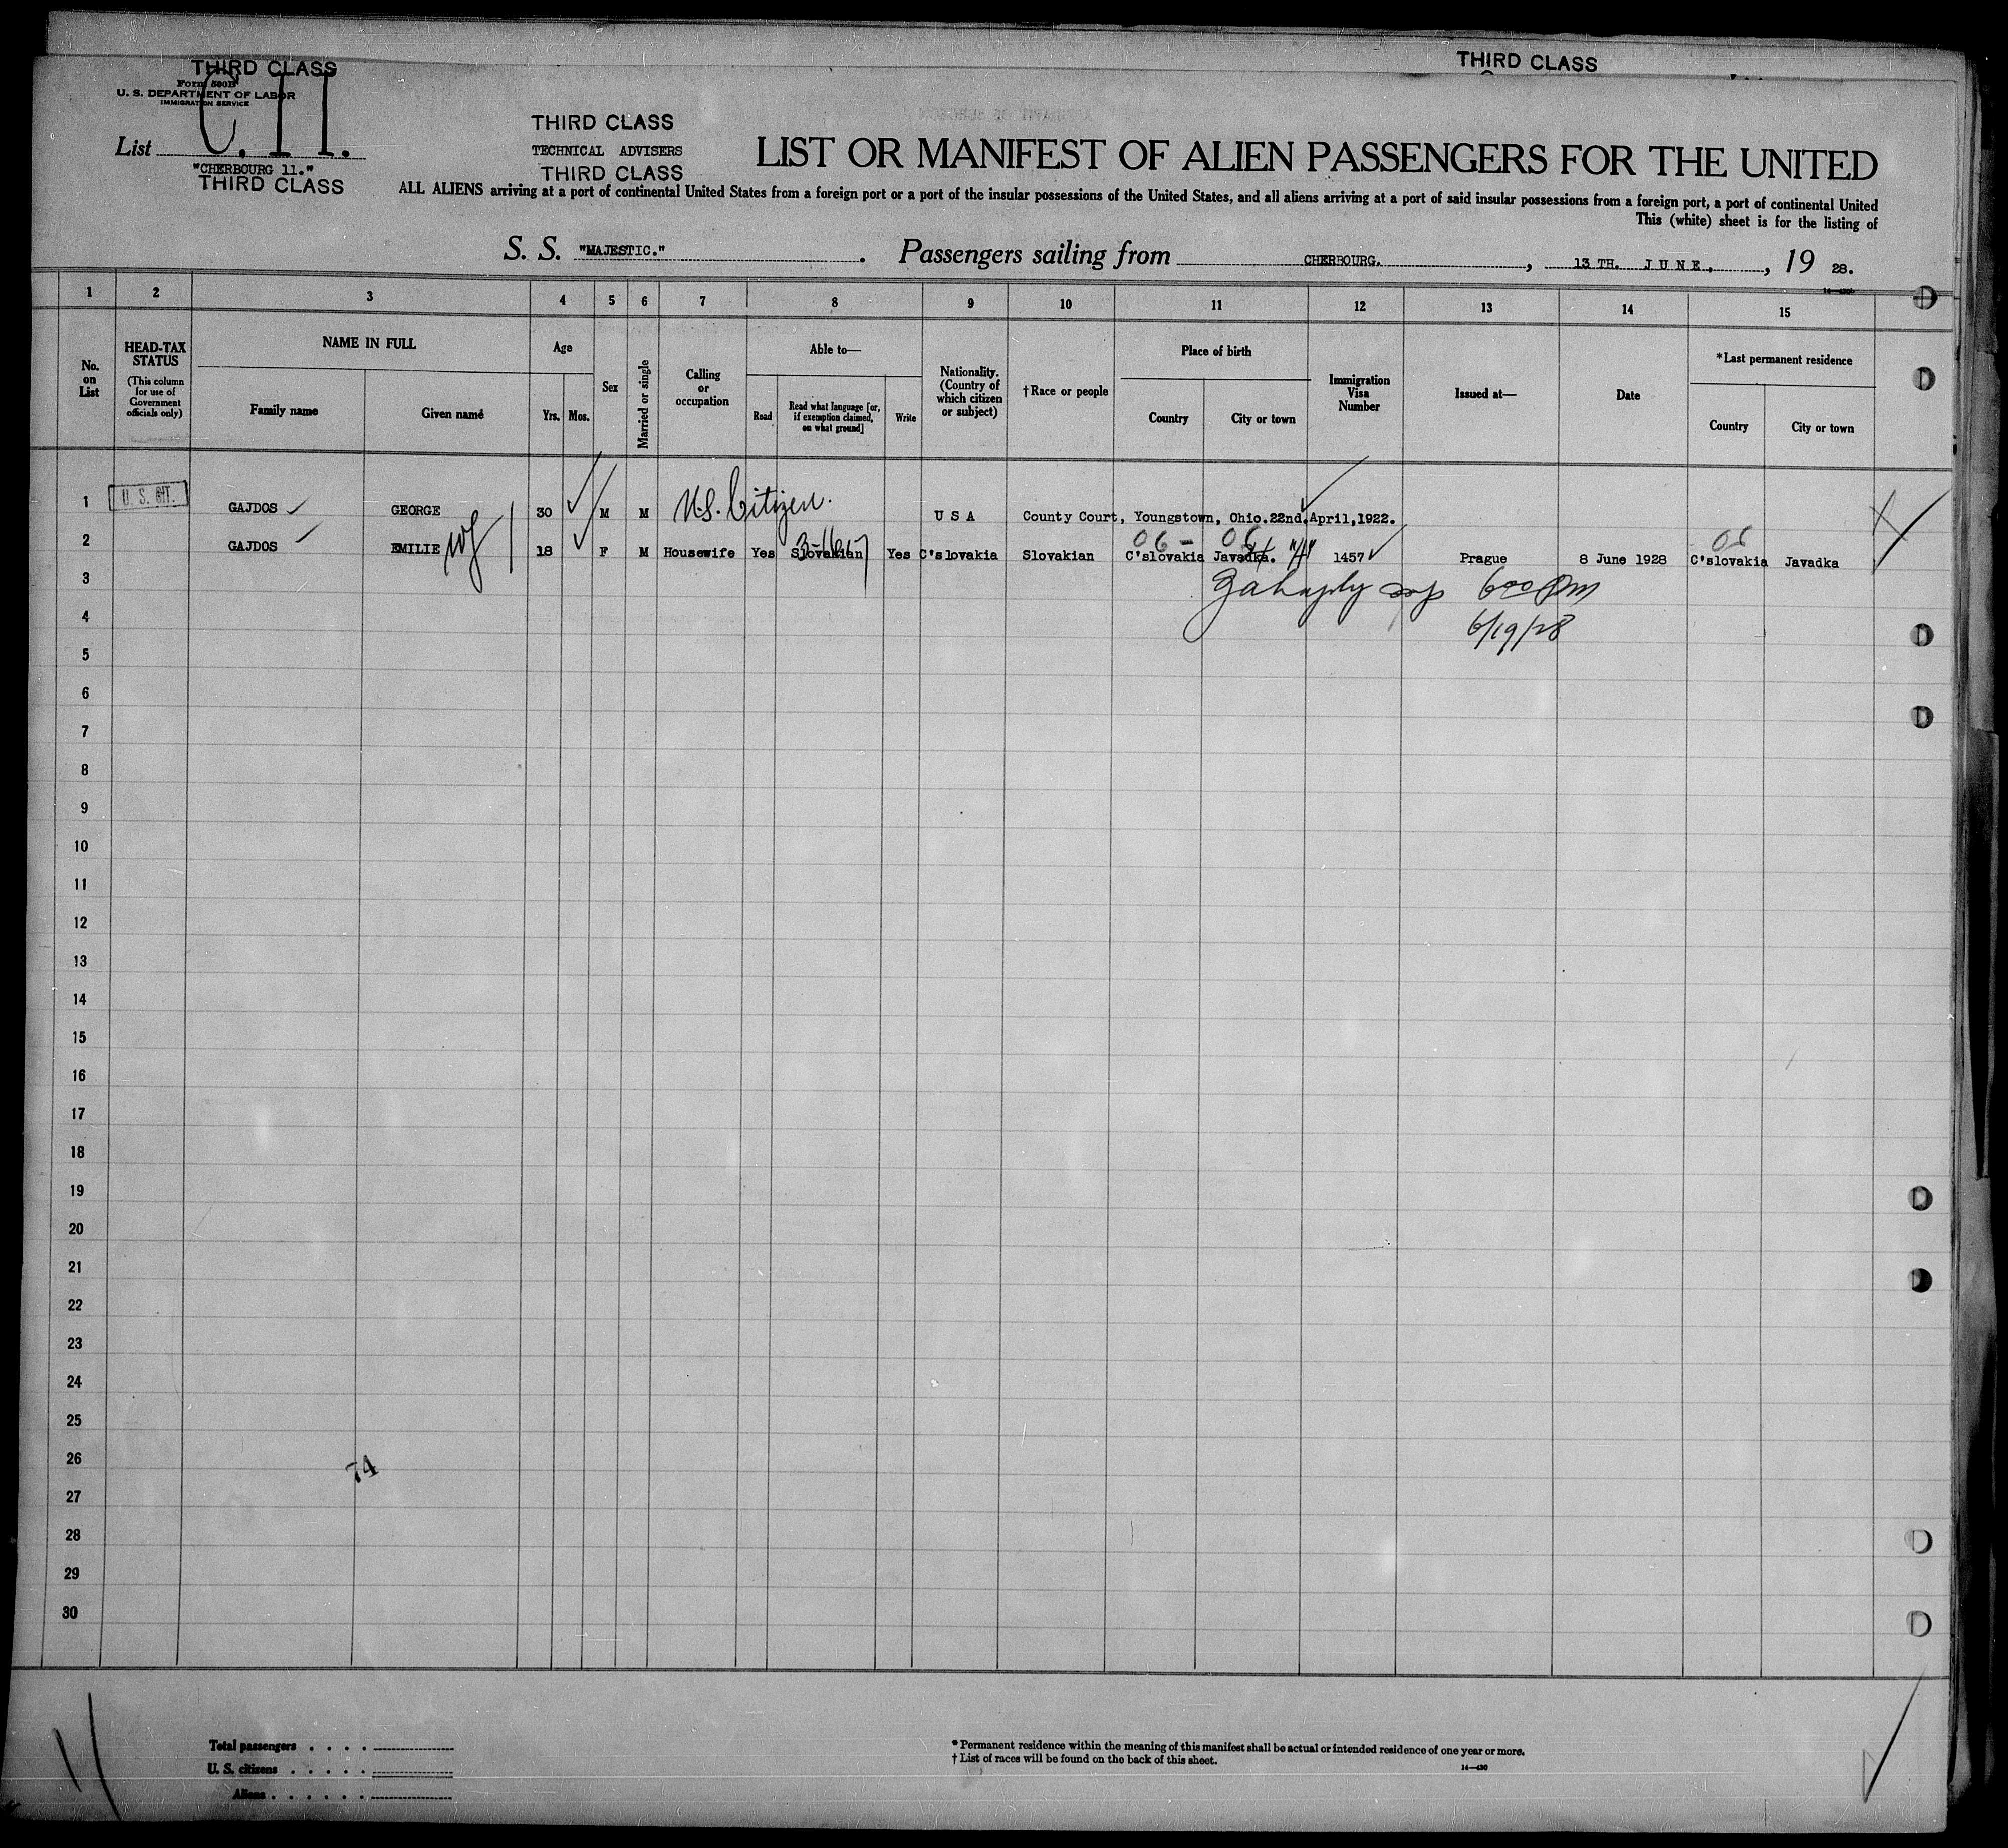 THIRD CLASS
THIRD CLASS
Form 500B
U. S. DEPARTMENT OF LABOR
IMMIGRATION SERVICE
List C. 11.
"CHERBOURG 11."
THIRD CLASS
THIRD CLASS
TECHNICAL ADVISERS
THIRD CLASS
LIST OR MANIFEST OF ALIEN PASSENGERS FOR THE UNITED
ALL ALIENS arriving at a port of continental United States from a foreign port or a port of the insular possessions of the United States, and all aliens arriving at a port of said insular possessions from a foreign port, a port of continental United
This (white) sheet is for the listing of
S. S. "MAJESTIC." . Passengers sailing from CHERBOURG. , 13 TH. JUNE, , 19 28.
1 2 3 4 5 6 7 8 9 10 11 12 13 14 15
No. on List
HEAD-TAX STATUS
(This column for use of Government officials only)
NAME IN FULL
Family name
Given name
Age
Yrs. Mos.
Sex
Married or single
Calling or occupation
Able to—
Read
Read what language [or, if exemption claimed, on what ground]
Write
Nationality. (Country of which citizen or subject)
†Race or people
Place of birth
Country
City or town
Immigration Visa Number
Issued at—
Date
*Last permanent residence
Country
City or town
1 U. S. CIT. GAJDOS GEORGE 30 M M U.S. Citizen. U S A County Court, Youngstown, Ohio. 22nd. April, 1922.
06 - 06 06
2 GAJDOS EMILIE wf 18 F M Housewife Yes Slovakian Yes C'slovakia Slovakian C'slovakia Javadka. 1457 Prague 8 June 1928 C'slovakia Javadka
3 6 00 pm
4 6/19/28
5
6
7
8
9
10
11
12
13
14
15
16
17
18
19
20
21
22
23
24
25
26
74
27
28
29
30
Total passengers . . . .
U. S. citizens . . . . .
Aliens . . . . . .
* Permanent residence within the meaning of this manifest shall be actual or intended residence of one year or more.
† List of races will be found on the back of this sheet.
14—430